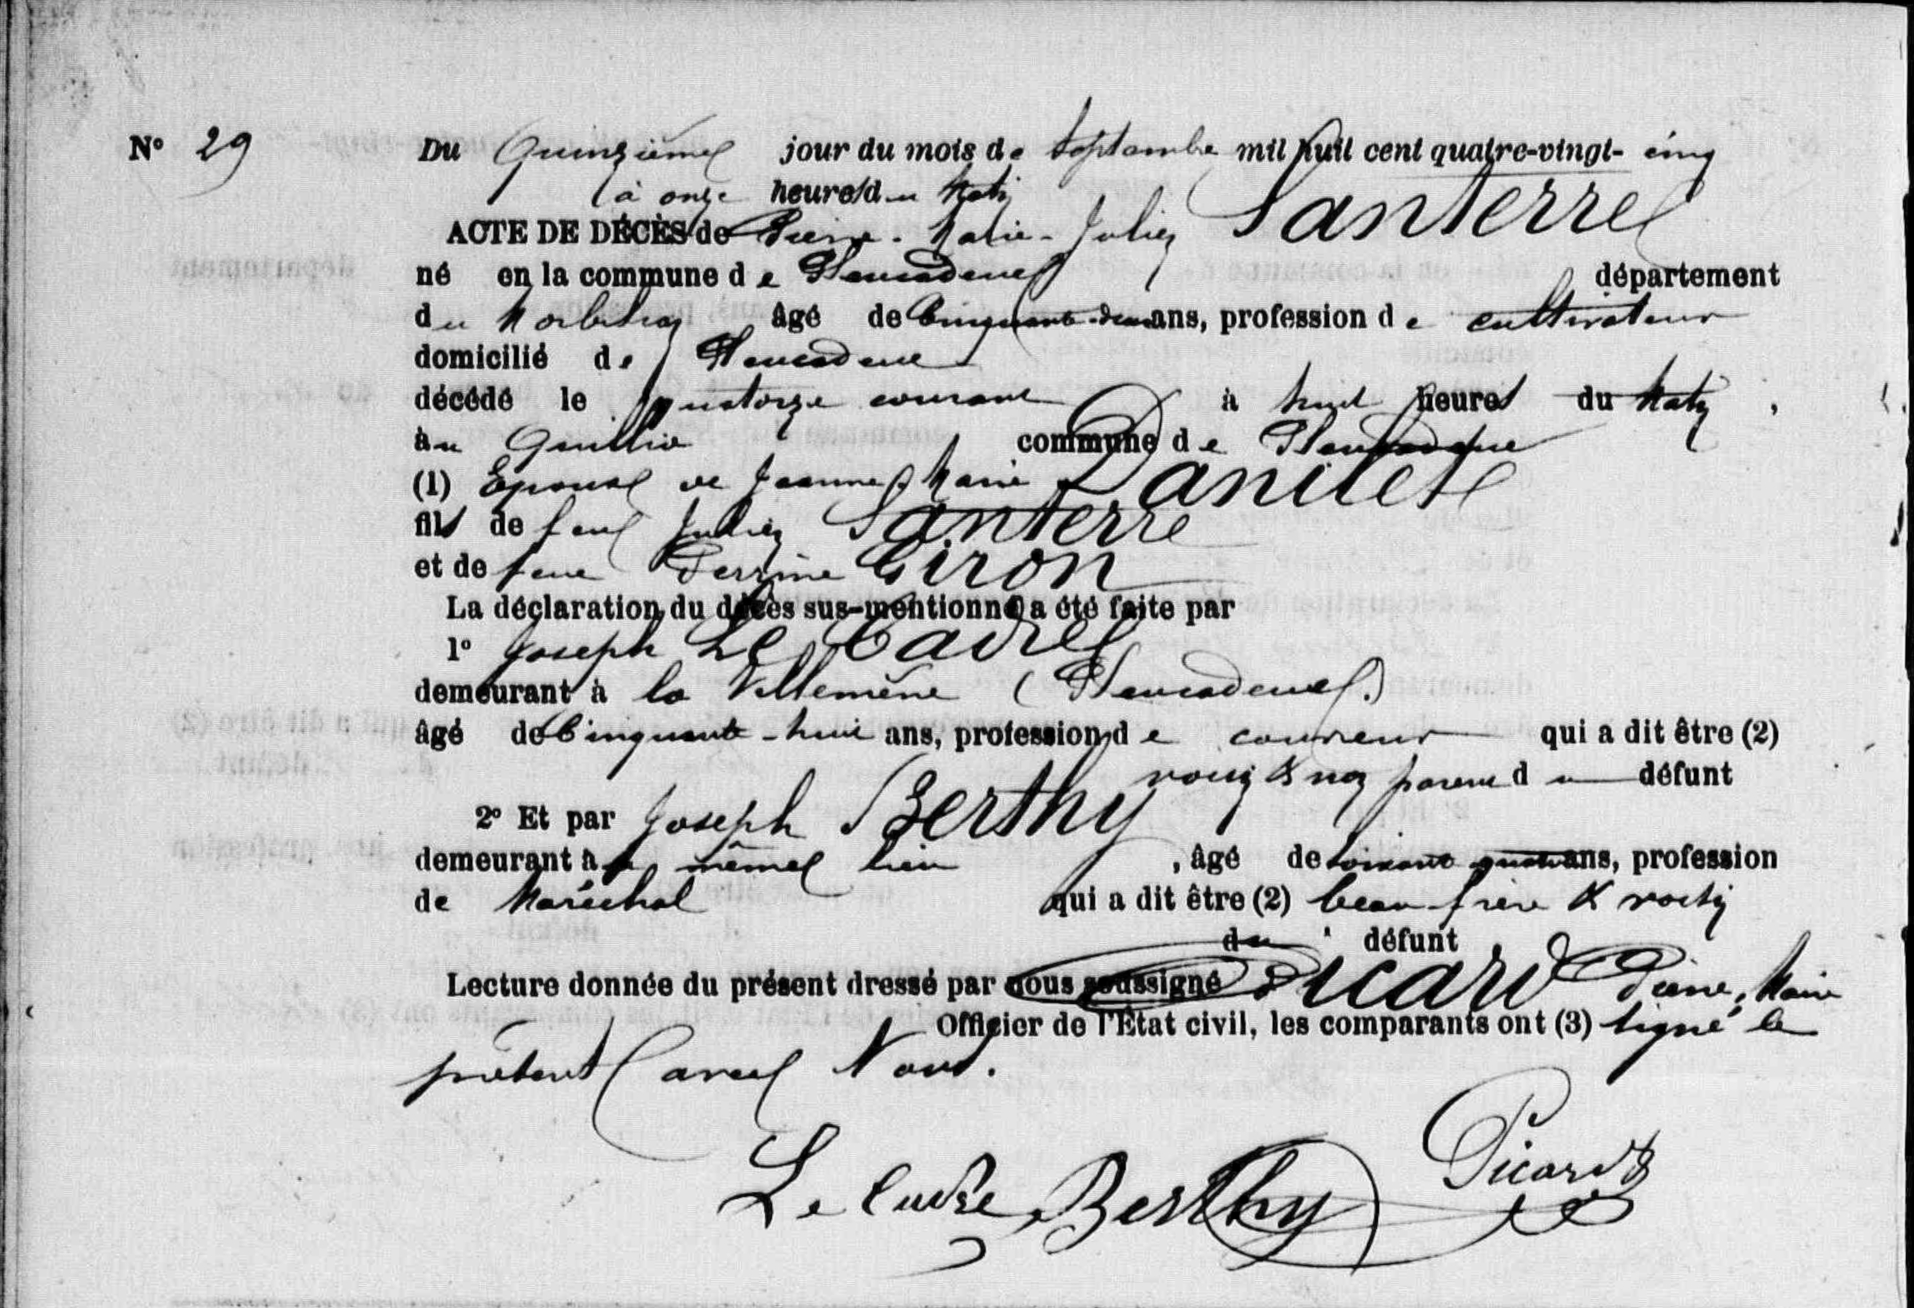 N° 29 Du Quinzième jour du mois de Septembre mil huit cent quatre-vingt- cinq
à onze heures du Matin
ACTE DE DÉCÈS de Pierre-Marie-Julien Santerre
né en la commune de Pleucadeuc département
du Morbihan âgé de Cinquante-deux ans, profession de cultivateur
domicilié de Pleucadeuc
décédé le quatorze courant à huit heures du Matin,
au Quillio commune de Pleucadeuc
(1) Epoux de Jeanne Marie Danilet
fils de feu Julien Santerre
et de feue Perrine Giron
La déclaration du décès sus-mentionné a été faite par
1° Joseph Le Cadre
demeurant à la Villemène (Pleucadeuc.)
âgé de Cinquante-huit ans, profession de couvreur qui a dit être (2)
voisin & non parent du défunt
2° Et par Joseph Berthy
demeurant à même lieu, âgé de soixante quatre ans, profession
de Maréchal qui a dit être (2) beau-frère & voisin
du défunt
Lecture donnée du présent dressé par nous soussigné Picard Pierre, Maire
Officier de l'État civil, les comparants ont (3) signé le
présent avec Nous.
Le Cadre Berthy Picard